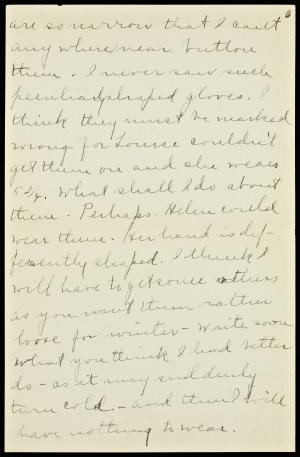 6
are so narrow that I can't
any where near button
them. I never saw such
peculiarly shaped gloves. I
think they must be marked
wrong for Louise couldn't
get them on and she wears
5 3/4. What shall I do about
them. Perhaps Helen could
wear them. Her hand is dif-
ferently shaped. I think I
will have to get some others
as you want them rather
loose for winter - Write soon
what you think I had better
do - as it may suddenly
turn cold - and then I will
have nothing to wear.